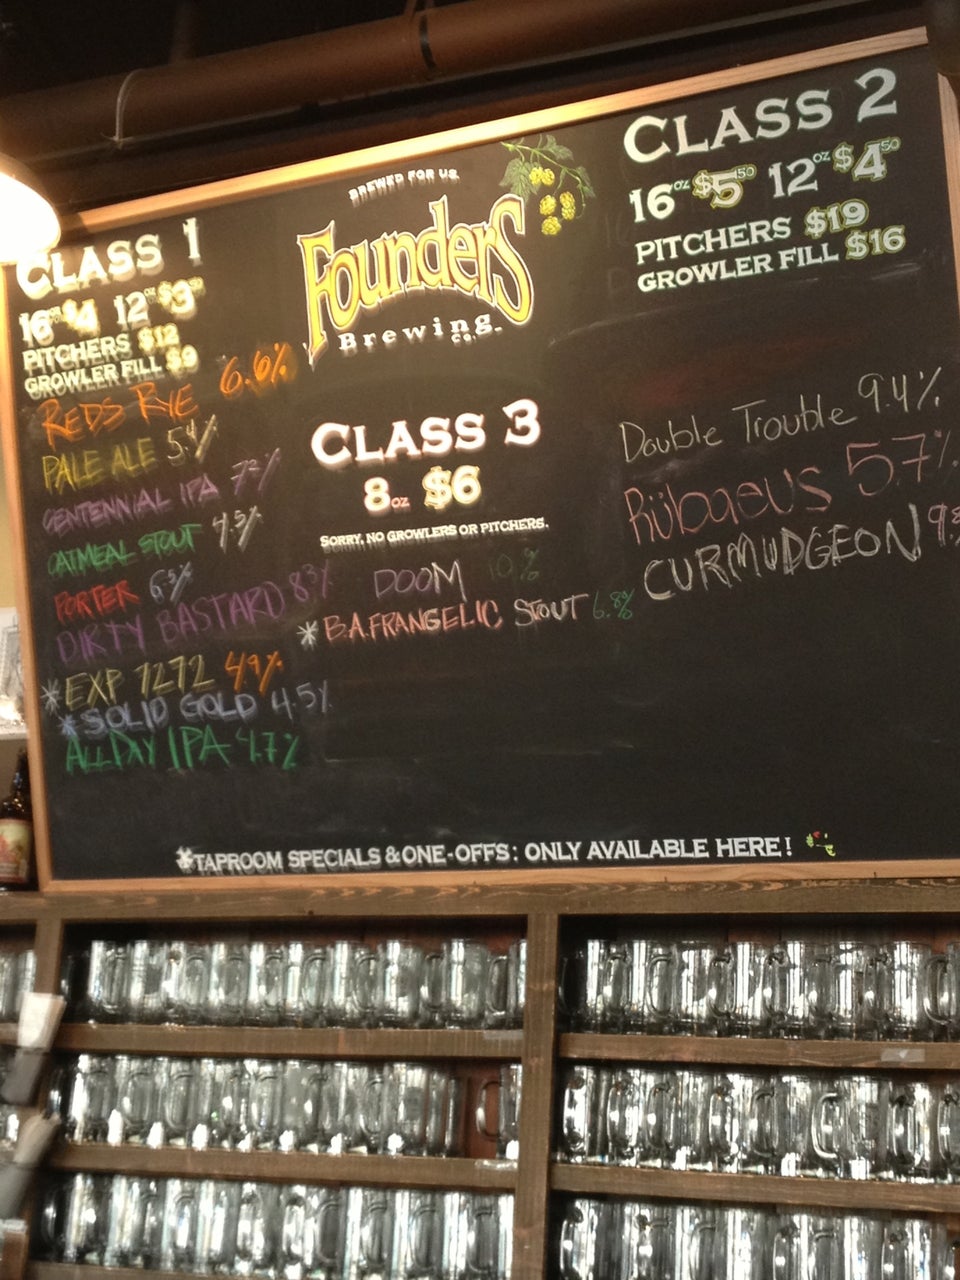 CLASS 1
16oz $4 12oz $3
PITCHERS $12
GROWLER FILL $9
REDS RYE 6.6%
PALE ALE 5.4%
CENTENNIAL IPA 7.2%
OATMEAL STOUT 4.5%
PORTER 6.5%
DIRTY BASTARD 8.3%
*EXP 1272 4.9%
*SOLID GOLD 4.5%
ALL DAY IPA 4.7%
BREWED FOR US
Founders
Brewing
CO.
CLASS 3
8oz $6
SORRY, NO GROWLERS OR PITCHERS.
DOOM 10%
*B.A.FRANGELIC STOUT 6.8%
CLASS 2
16oz $5.50 12oz $4.50
PITCHERS $19
GROWLER FILL $16
Double Trouble 9.4%
Rübaeus 5.7%
CURMUDGEON 9.8%
*TAPROOM SPECIALS & ONE-OFFS: ONLY AVAILABLE HERE!